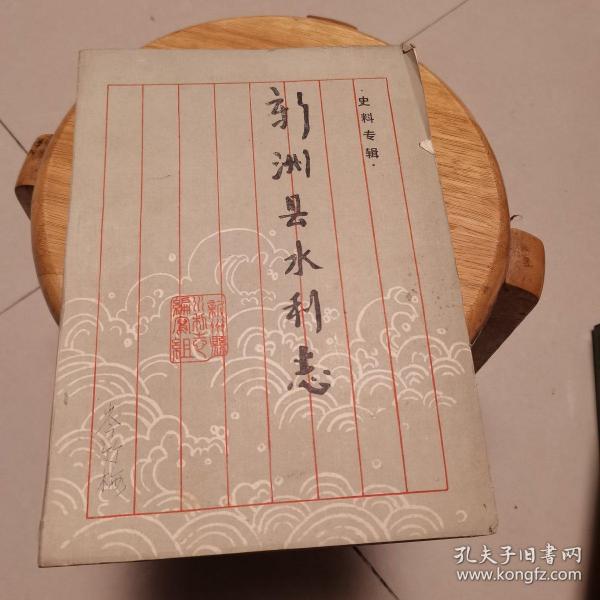 ·史料专辑·
新洲县水利志
新洲县
水利志
编写组
孔夫子旧书网
www.kongfz.com